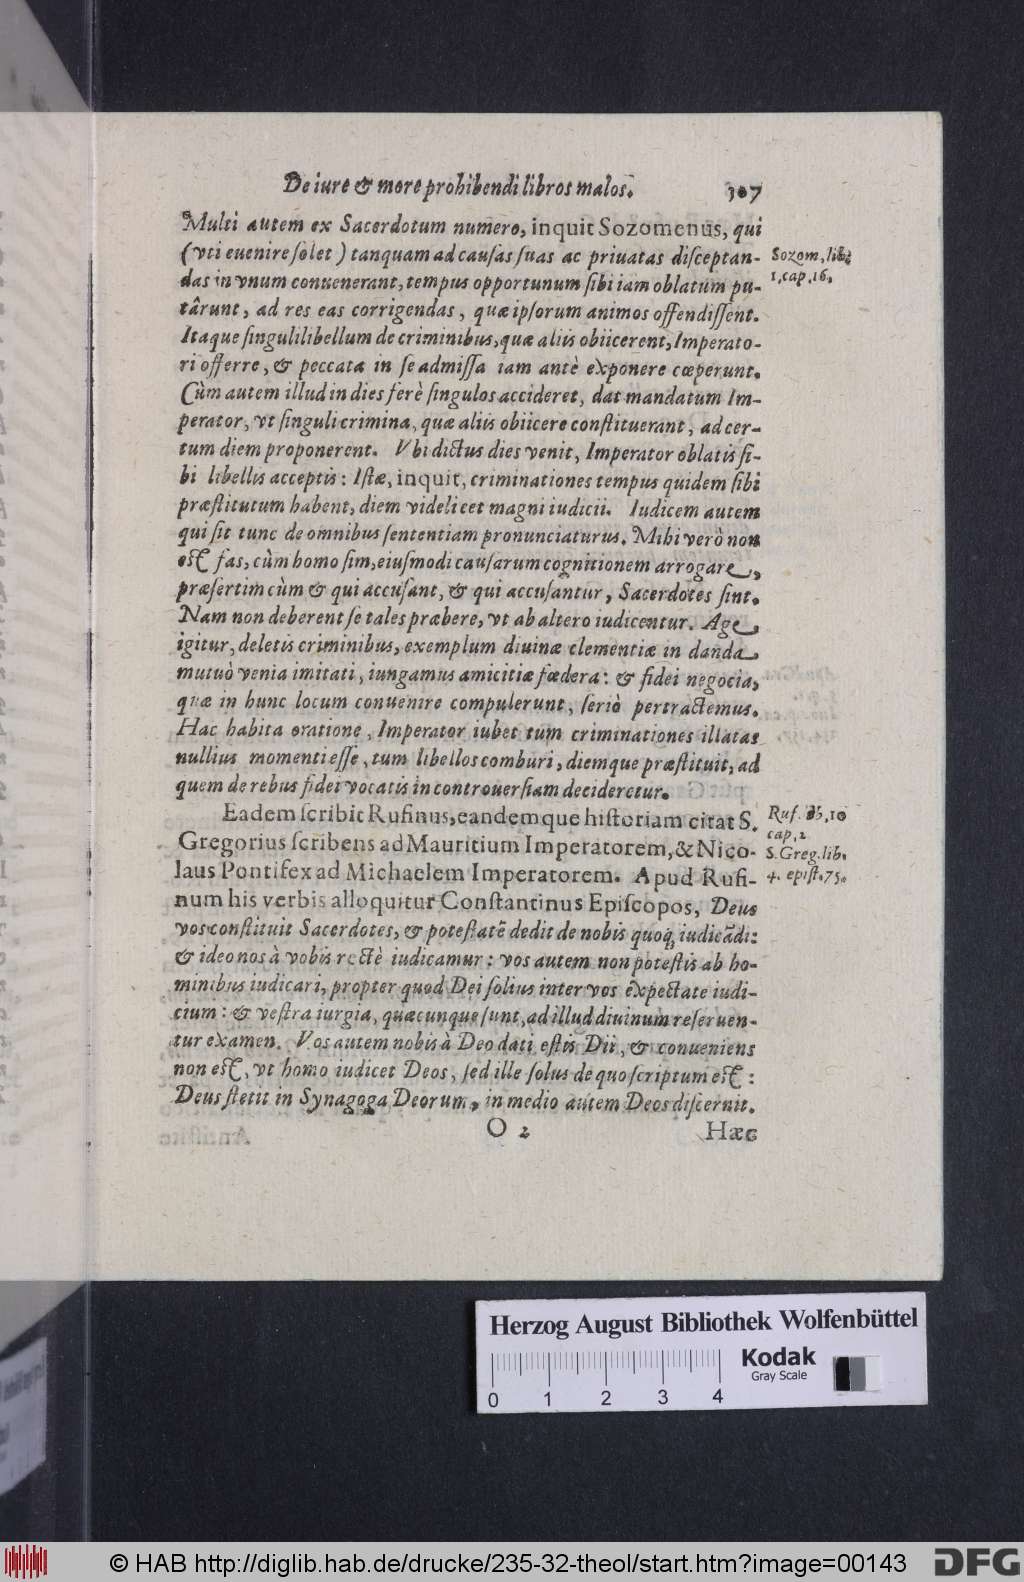 De iure & more prohibendi libros malos. 107
Multi autem ex Sacerdotum numero, inquit Sozomenus, qui
(vti euenire ſolet) tanquam ad cauſas ſuas ac priuatas diſceptan-
das in vnum conuenerant, tempus opportunum ſibi iam oblatum pu-
târunt, ad res eas corrigendas, quæ ipſorum animos offendiſſent.
Itaque ſinguli libellum de criminibus, quæ aliis obiicerent, Imperato-
ri offerre, & peccata in ſe admiſſa iam antè exponere cœperunt.
Cùm autem illud in dies ferè ſingulos accideret, dat mandatum Im-
perator, vt ſinguli crimina, quæ aliis obiicere conſtituerant, ad cer-
tum diem proponerent. Vbi dictus dies venit, Imperator oblatis ſi-
bi libellis acceptis: Iſtæ, inquit, criminationes tempus quidem ſibi
præſtitutum habent, diem videlicet magni iudicii. Iudicem autem
qui ſit tunc de omnibus ſententiam pronunciaturus. Mihi verò non
eſt fas, cùm homo ſim, eiuſmodi cauſarum cognitionem arrogare,
præſertim cùm & qui accuſant, & qui accuſantur, Sacerdotes ſint.
Nam non deberent ſe tales præbere, vt ab altero iudicentur. Age,
igitur, deletis criminibus, exemplum diuinæ clementiæ in danda
mutuò venia imitati, iungamus amicitiæ fœdera: & fidei negocia,
quæ in hunc locum conuenire compulerunt, ſeriò pertractemus.
Hac habita oratione, Imperator iubet tum criminationes illatas
nullius momenti eſſe, tum libellos comburi, diemque præſtituit, ad
quem de rebus fidei vocatis in controuerſiam decideretur.
Sozom. lib.
1. cap. 16.
Eadem ſcribit Rufinus, eandemque hiſtoriam citat S.
Gregorius ſcribens ad Mauritium Imperatorem, & Nico-
laus Pontifex ad Michaelem Imperatorem. Apud Rufi-
num his verbis alloquitur Conſtantinus Epiſcopos, Deus
vos conſtituit Sacerdotes, & poteſtatē dedit de nobis quoq; iudicādi:
& ideo nos à vobis rectè iudicamur: vos autem non poteſtis ab ho-
minibus iudicari, propter quod Dei ſolius inter vos expectate iudi-
cium: & veſtra iurgia, quæcunque ſunt, ad illud diuinum reſeruen-
tur examen. Vos autem nobis à Deo dati eſtis Dii, & conueniens
non eſt, vt homo iudicet Deos, ſed ille ſolus de quo ſcriptum eſt:
Deus ſtetit in Synagoga Deorum, in medio autem Deos diſcernit.
Ruf. 10
cap. 2
S. Greg. lib.
4. epiſt. 75.
O 2 Hæc
Herzog August Bibliothek Wolfenbüttel
Kodak
Gray Scale
0 1 2 3 4
© HAB http://diglib.hab.de/drucke/235-32-theol/start.htm?image=00143
DFG